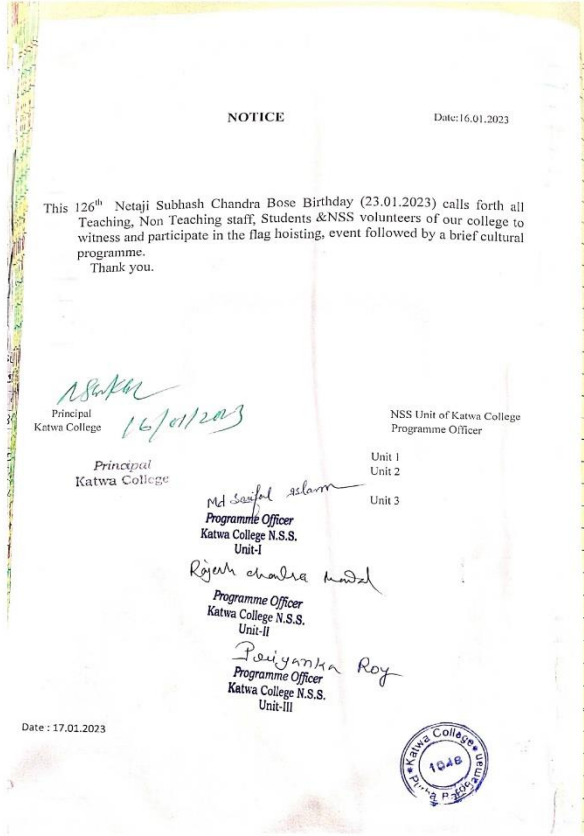 NOTICE
Date:16.01.2023
This 126th Netaji Subhash Chandra Bose Birthday (23.01.2023) calls forth all
Teaching, Non Teaching staff, Students &NSS volunteers of our college to
witness and participate in the flag hoisting, event followed by a brief cultural
programme.
Thank you.
Principal
Katwa College
16/01/2023
Principal
Katwa College
NSS Unit of Katwa College
Programme Officer
Unit 1
Unit 2
Unit 3
Md Sariful Islam
Programme Officer
Katwa College N.S.S.
Unit-I
Rajesh Chandra Mondal
Programme Officer
Katwa College N.S.S.
Unit-II
Priyanka Roy
Programme Officer
Katwa College N.S.S.
Unit-III
Date : 17.01.2023
Katwa College
1948